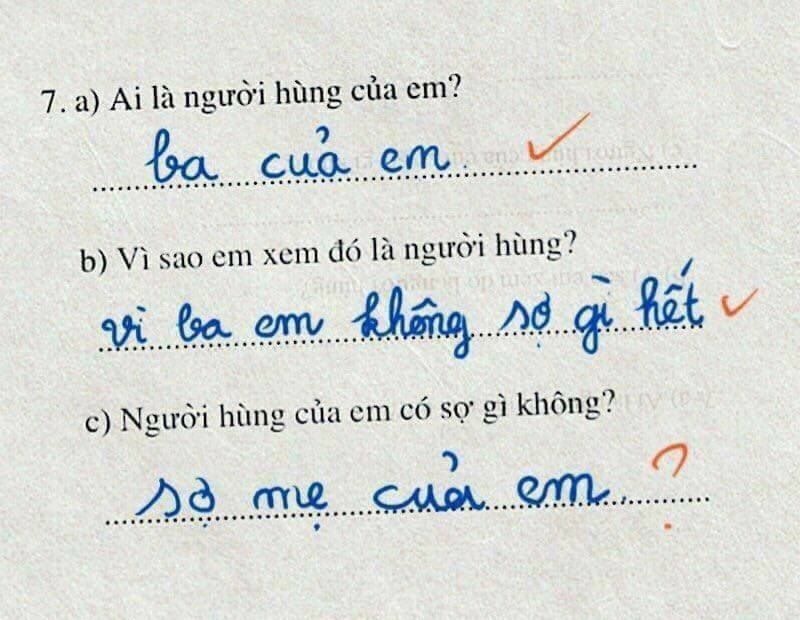 7. a) Ai là người hùng của em?
ba của em.
b) Vì sao em xem đó là người hùng?
vì ba em không sợ gì hết
c) Người hùng của em có sợ gì không?
sợ mẹ của em. ?